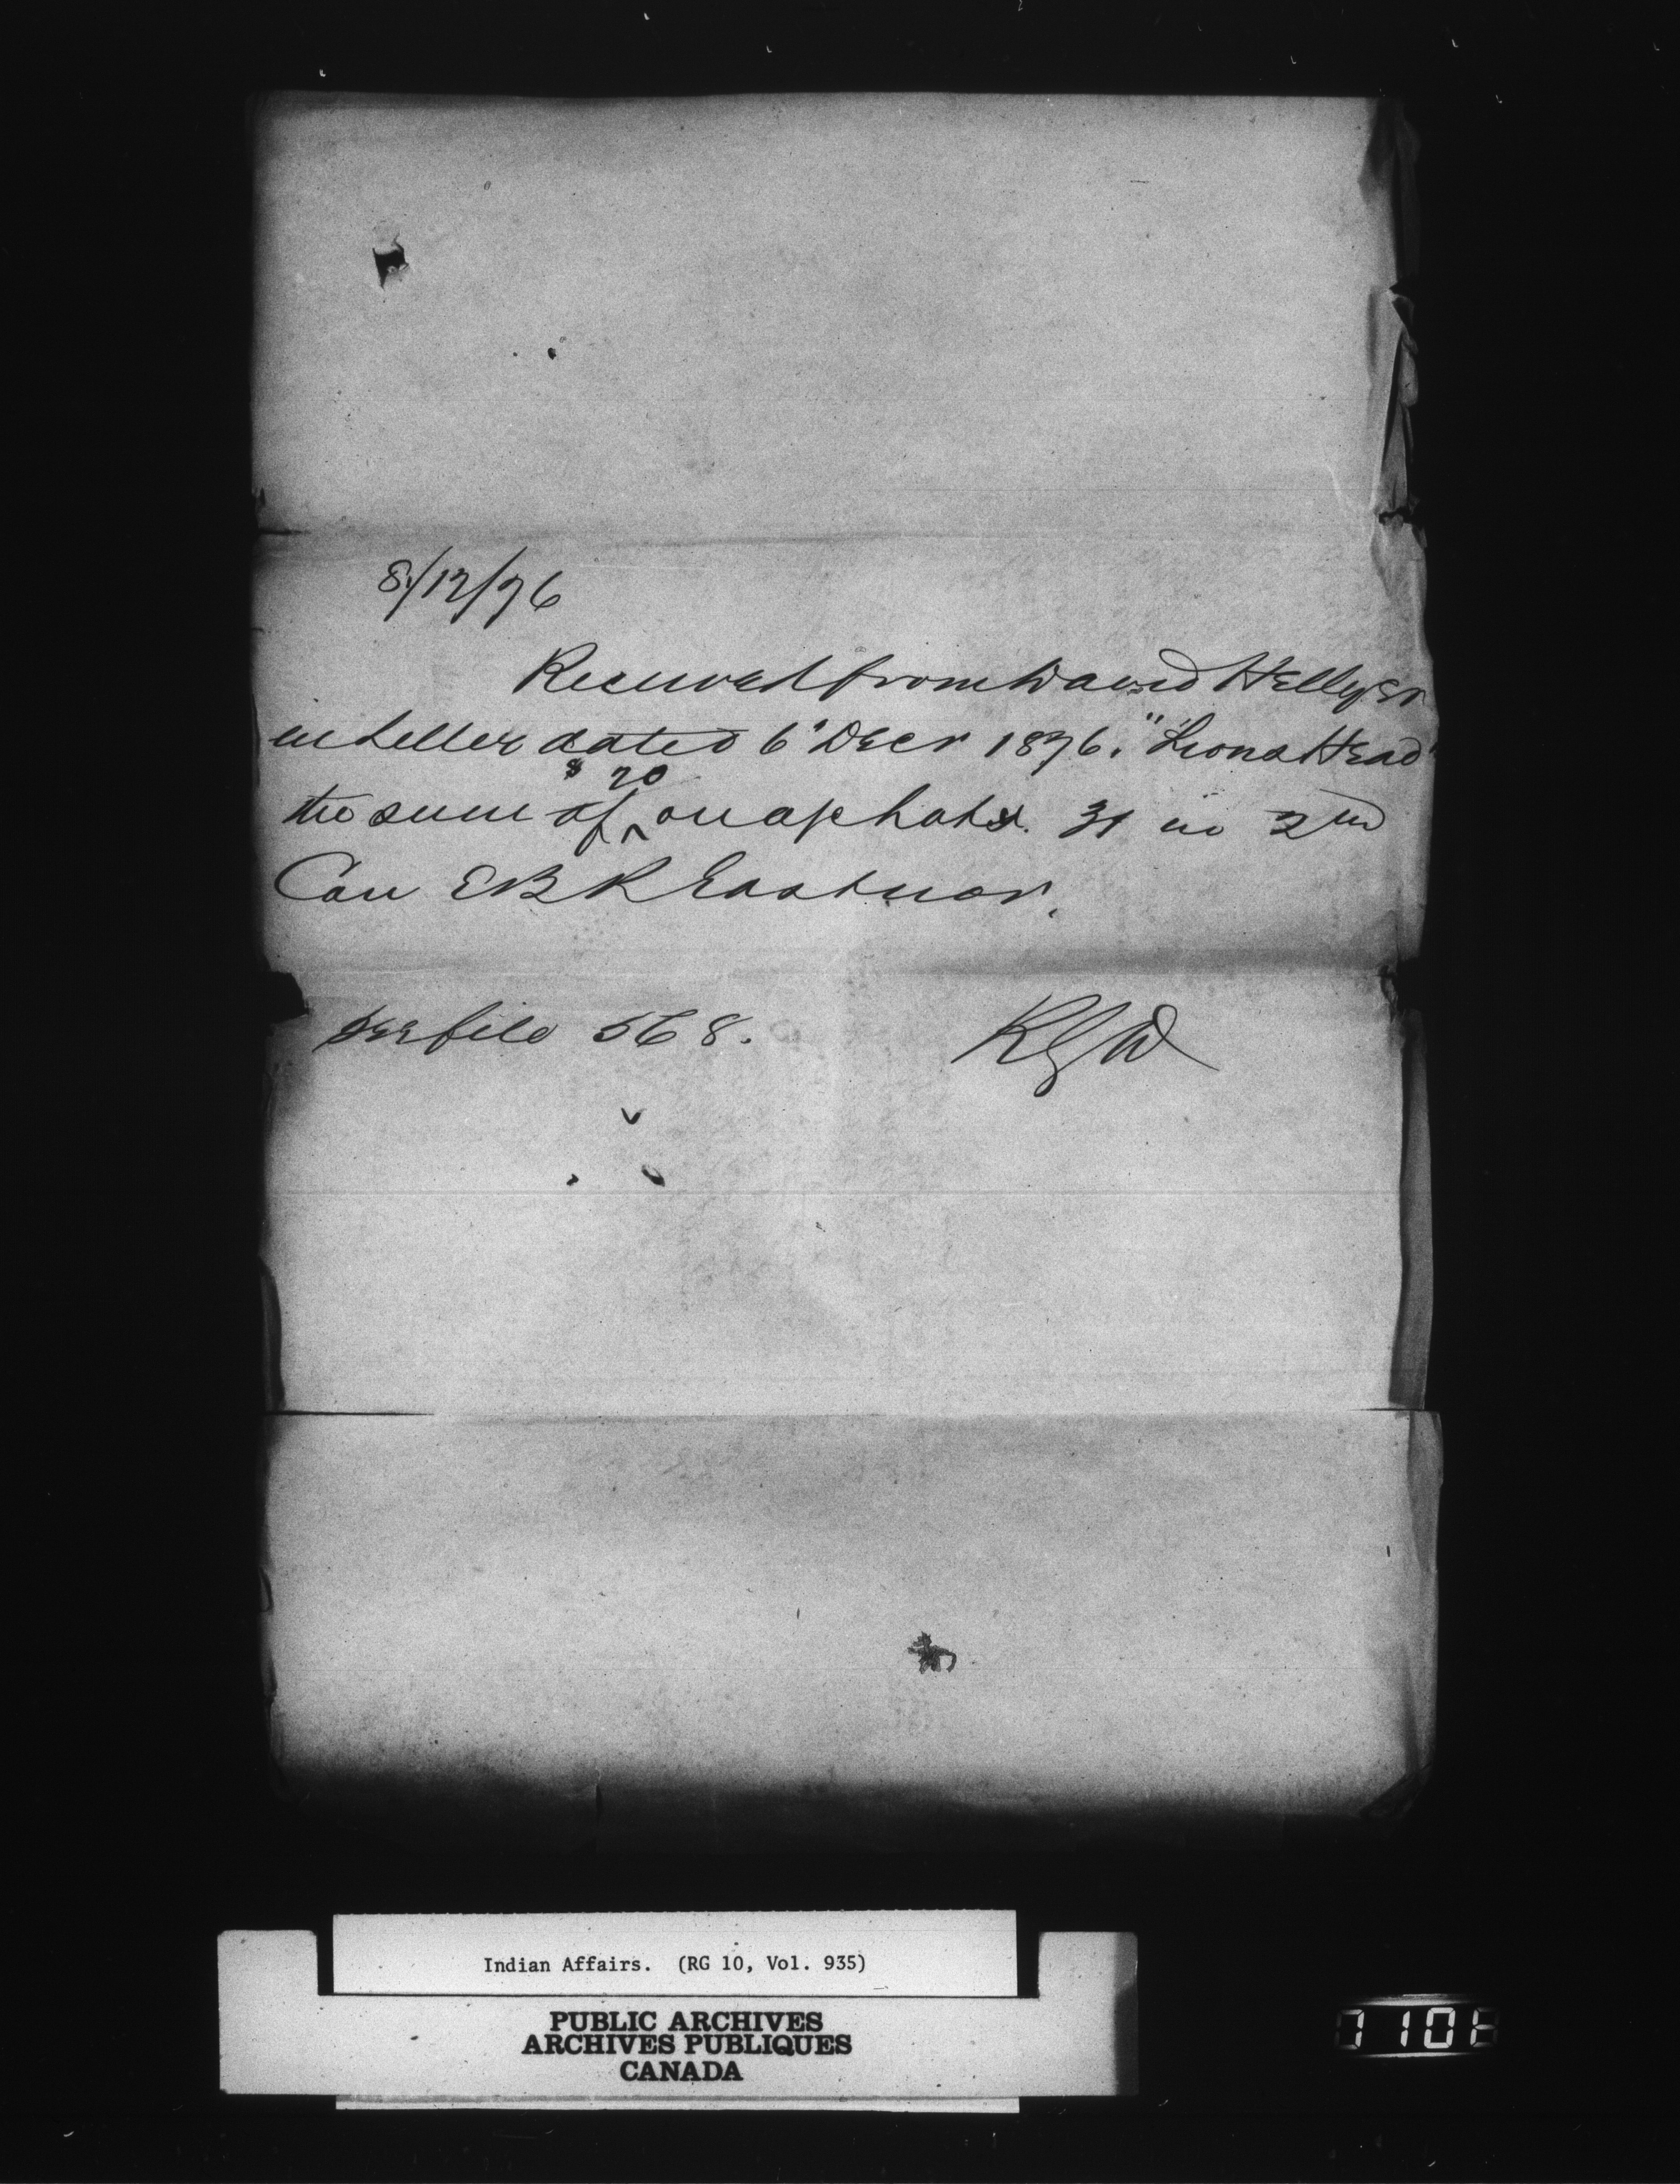 8/12/76
Received from David Hellyer
in letter dated 6" Decr 1876. "Lions Head"
the sum of ^ $20 on a/c of Lot 31 in 2nd
Con EBR Eastnor.
See file 568.
Indian Affairs. (RG 10, Vol. 935)
PUBLIC ARCHIVES
ARCHIVES PUBLIQUES
CANADA